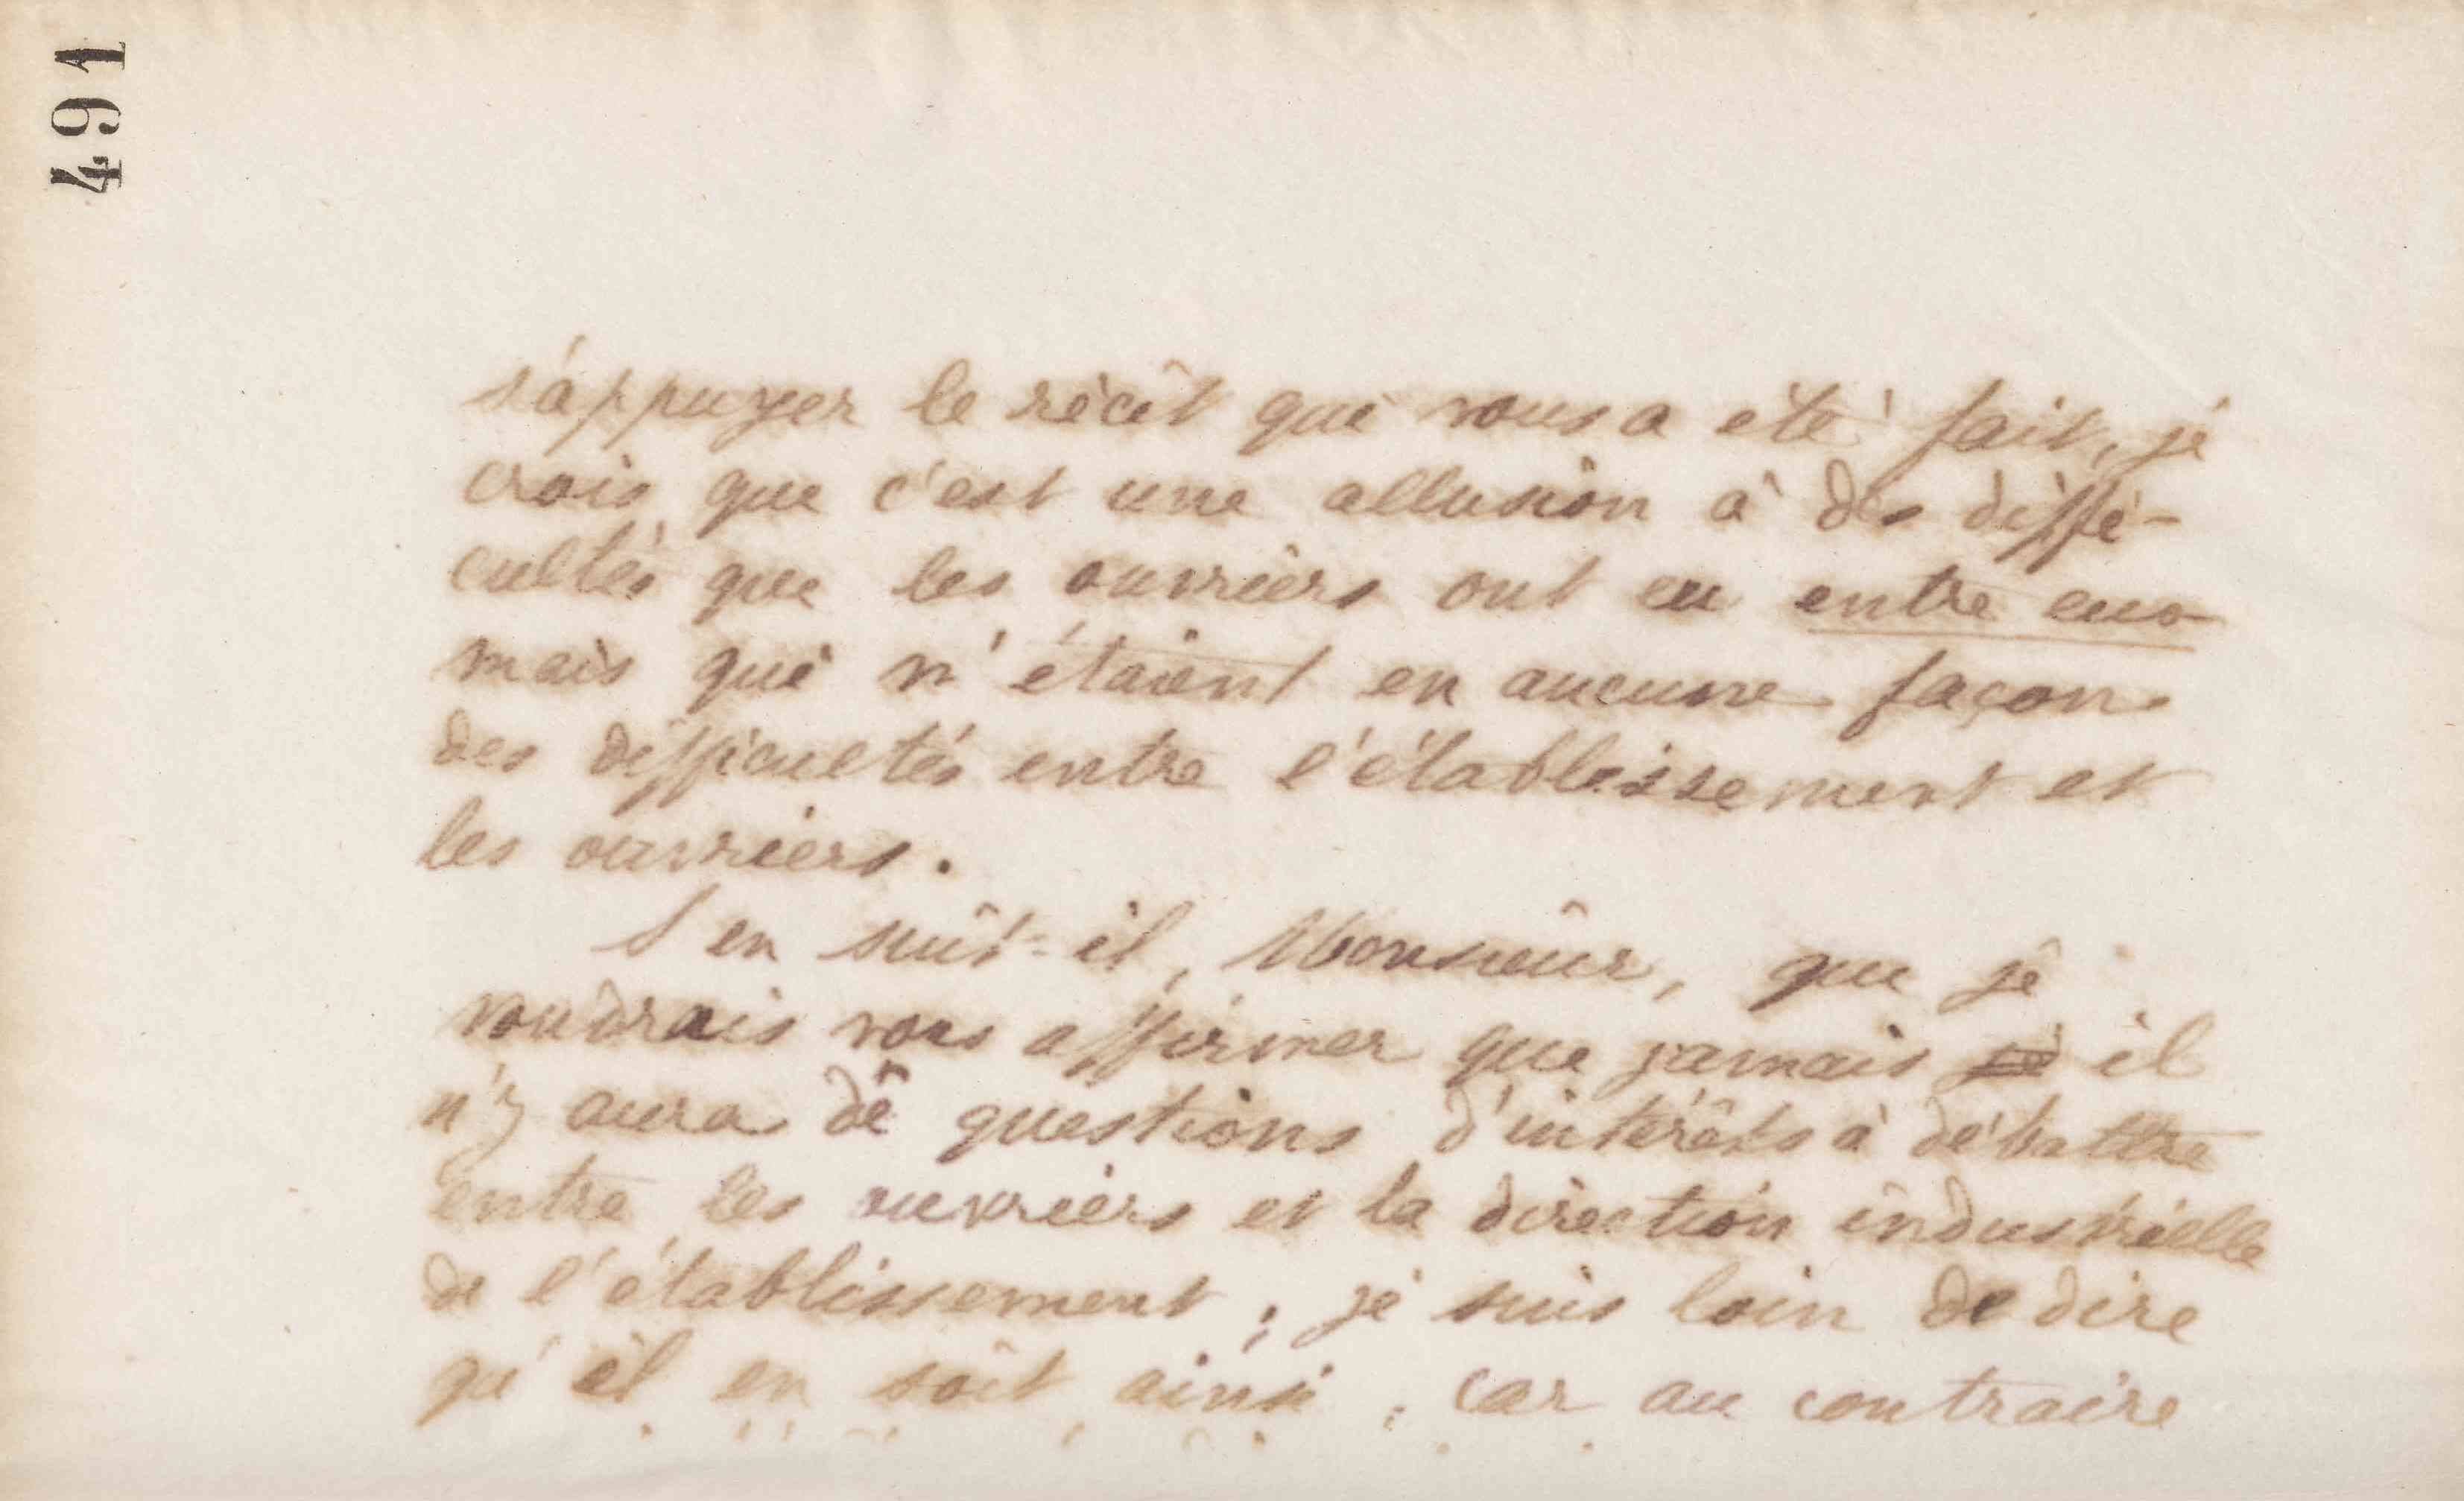 491
s'appuyer le récit qui vous a été fait, je
crois que c'est une allusion à des diffi-
cultés que les ouvriers ont eu entre eux
mais qui n'étaient en aucune façon
des difficultés entre l'établissement et
les ouvriers.
S'en suit-il, Monsieur, que je
voudrais vous affirmer que jamais il
n'y aura de questions d'intérêts à débattre
entre les ouvriers et la direction industrielle
de l'établissement ; je suis loin de dire
qu'il en soit ainsi ; car au contraire